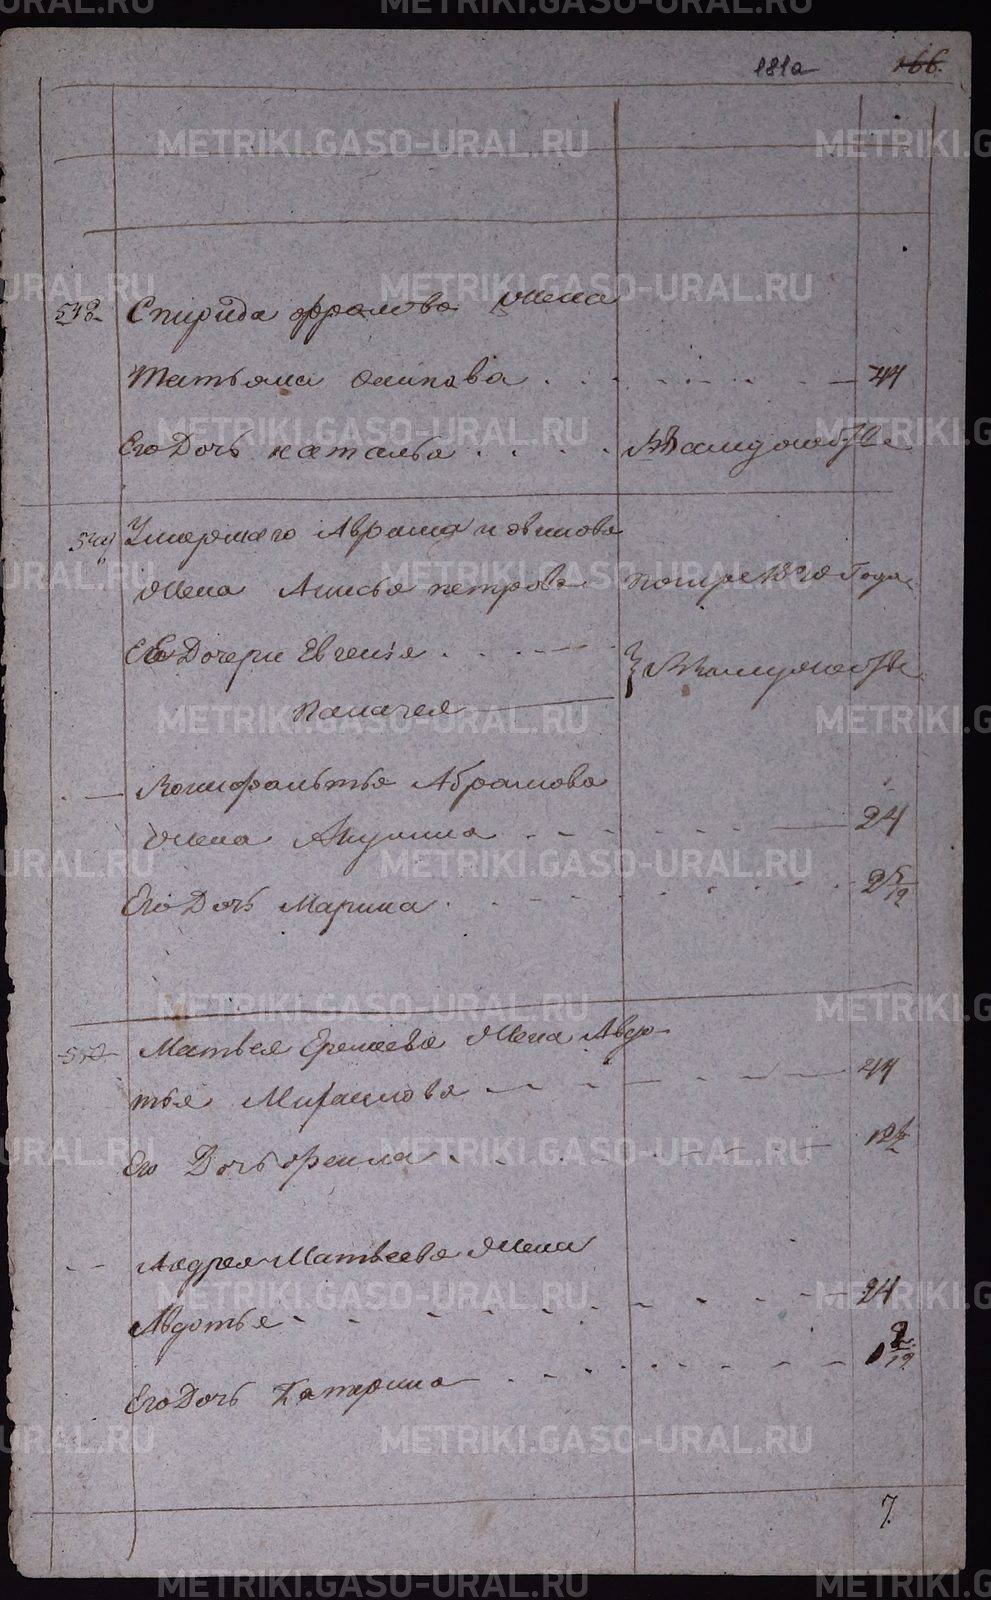 181а 166.
548 Спирида Фролова жена
Татьяна Осипова 44
Его Дочь наталья В Замужестве
549 Умершаго Аврама
жена Анисья петрова помре 1820 года
Его Дочери Евгенія В Замужестве
Палагея
Абрамова
жена Акулина 24
Его Дочь Марина
550 Матвея Еремеева жена Авдо
тья Михаилова 44
Его Дочь
Андрея Матвеева жена
Авдотья 24
Его Дочь Катерина
7.
METRIKI.GASO-URAL.RU